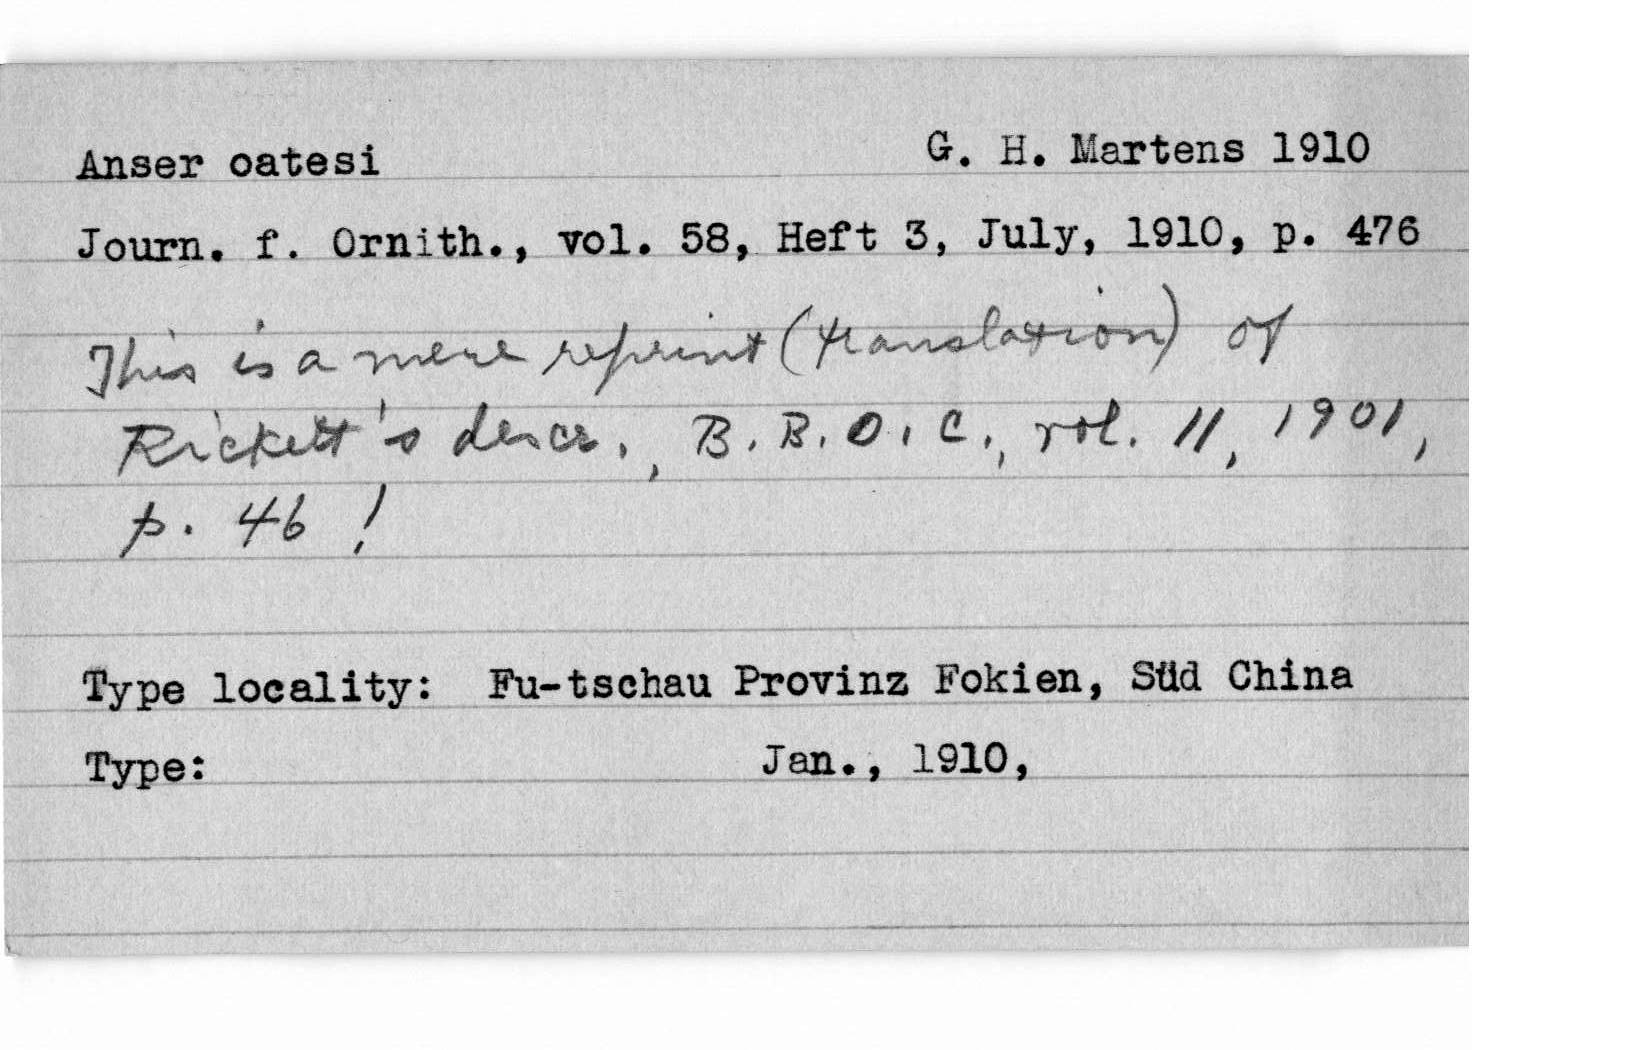 Anser oatesi G. H. Martens 1910
Journ. f. Ornith., vol. 58, Heft 3, July, 1910, p. 476
This is a mere reprint (translation) of
Rickett's descr., B.B.O.C., vol. 11, 1901,
p. 46 !
Type locality: Fu-tschau Provinz Fokien, Süd China
Type: Jan., 1910,